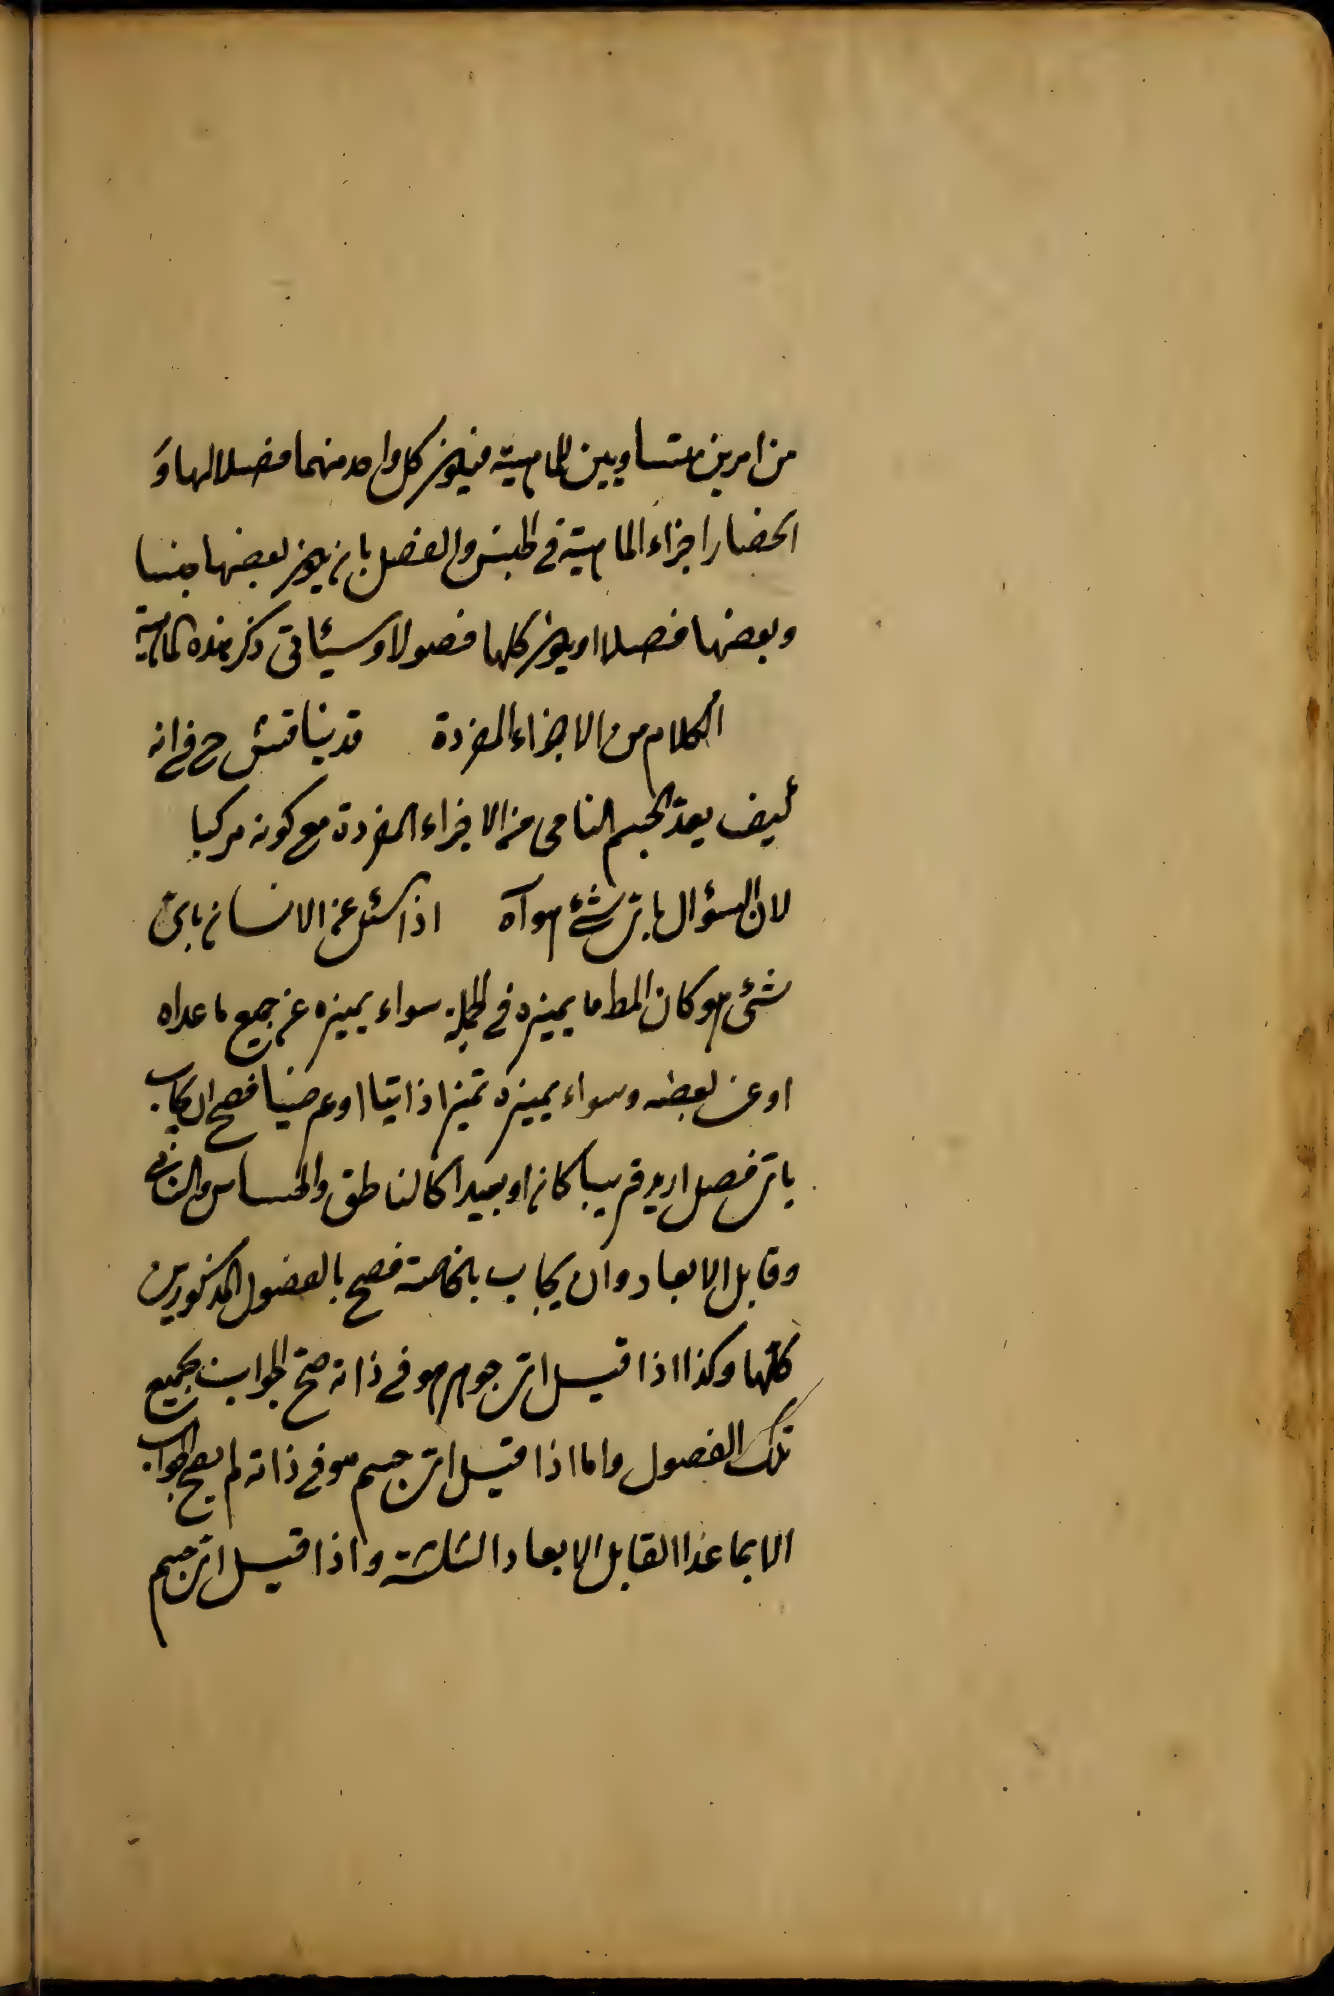 من امرين متساويين للماهية فيكون كل واحد منهما فصلا لها و
انحصار اجزاء الماهية في الجنس والفصل بان يكون بعضها جنسا
وبعضها فصلا او يكون كلها فصولا وسيئاتى ذكر هذه الماهية
الكلام من الاجزاء المفردة قد يناقش ح في انه
كيف يعد الجسم النامى من الاجزاء المفردة مع كونه مركبا
لان السؤال باى شئ هو آه اذا سئل عن الانسان باى
شئ هو كان المط ما يميزه في الجملة سواء يميزه عن جميع ما عداه
او عن بعضه وسواء يميزه تميزا ذاتيا او عرضيا فصح ان يجاب
باى فصل اريد قريبا كان او بعيدا كالناطق والحساس والنامى
وقابل الابعاد وان يجاب بالخاصة فصح بالفصول المذكورين
كلها وكذا اذا قيل اى جوهر هو في ذاته صح الجواب بجميع
تلك الفصول واما اذا قيل اى جسم هو في ذاته لم يصح الجواب
الا بما عدا القابل الابعاد الثلثة واذا قيل اى جسم